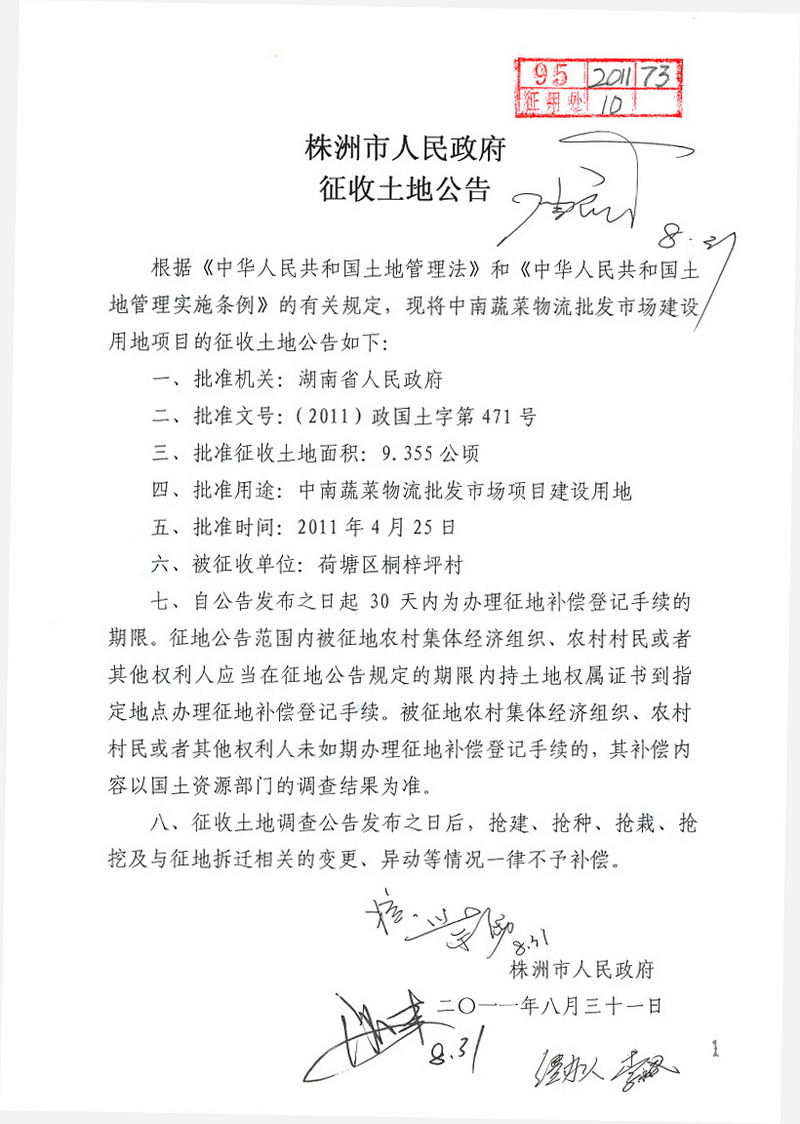 95 2011 73
征用处 10
株洲市人民政府
征收土地公告
8.31
根据《中华人民共和国土地管理法》和《中华人民共和国土
地管理实施条例》的有关规定，现将中南蔬菜物流批发市场建设
用地项目的征收土地公告如下：
一、批准机关：湖南省人民政府
二、批准文号：（2011）政国土字第 471 号
三、批准征收土地面积：9.355 公顷
四、批准用途：中南蔬菜物流批发市场项目建设用地
五、批准时间：2011 年 4 月 25 日
六、被征收单位：荷塘区桐梓坪村
七、自公告发布之日起 30 天内为办理征地补偿登记手续的
期限。征地公告范围内被征地农村集体经济组织、农村村民或者
其他权利人应当在征地公告规定的期限内持土地权属证书到指
定地点办理征地补偿登记手续。被征地农村集体经济组织、农村
村民或者其他权利人未如期办理征地补偿登记手续的，其补偿内
容以国土资源部门的调查结果为准。
八、征收土地调查公告发布之日后，抢建、抢种、抢栽、抢
挖及与征地拆迁相关的变更、异动等情况一律不予补偿。
8.31
株洲市人民政府
二〇一一年八月三十一日
8.31
经办人
1